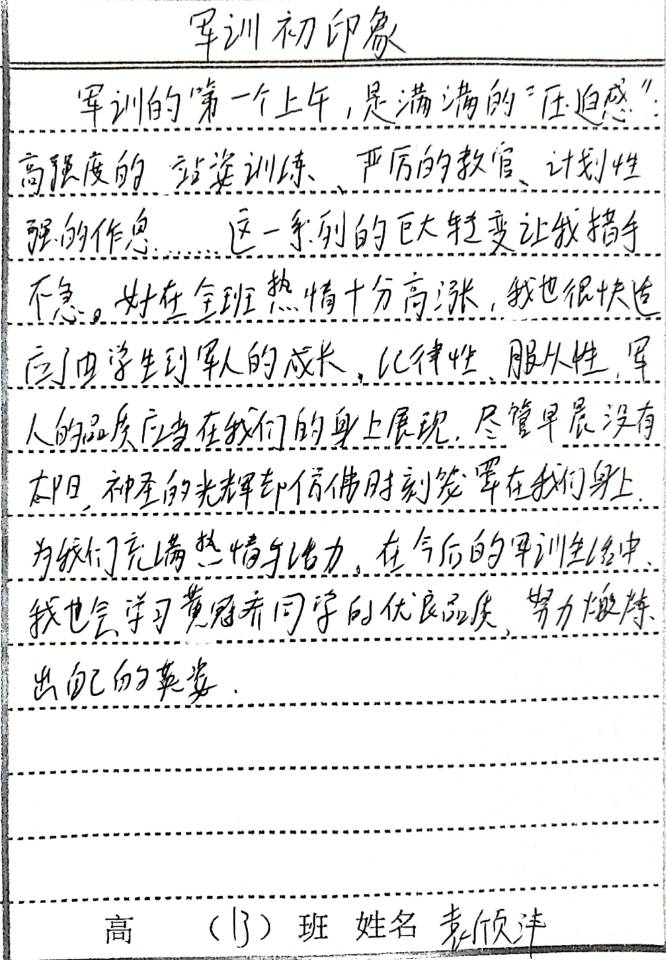 军训初印象
军训的第一个上午，是满满的“压迫感”：
高强度的站姿训练、严厉的教官、计划性
强的作息……这一系列的巨大转变让我措手
不急。好在全班热情十分高涨，我也很快适
应了由学生到军人的成长。纪律性、服从性，军
人的品质应当在我们的身上展现。尽管早晨没有
太阳，神圣的光辉却仿佛时刻笼罩在我们身上，
为我们充满热情与活力。在今后的军训生活中，
我也会学习黄冠乔同学的优良品质，努力锻炼
出自己的英姿。
高 （13）班 姓名 袁